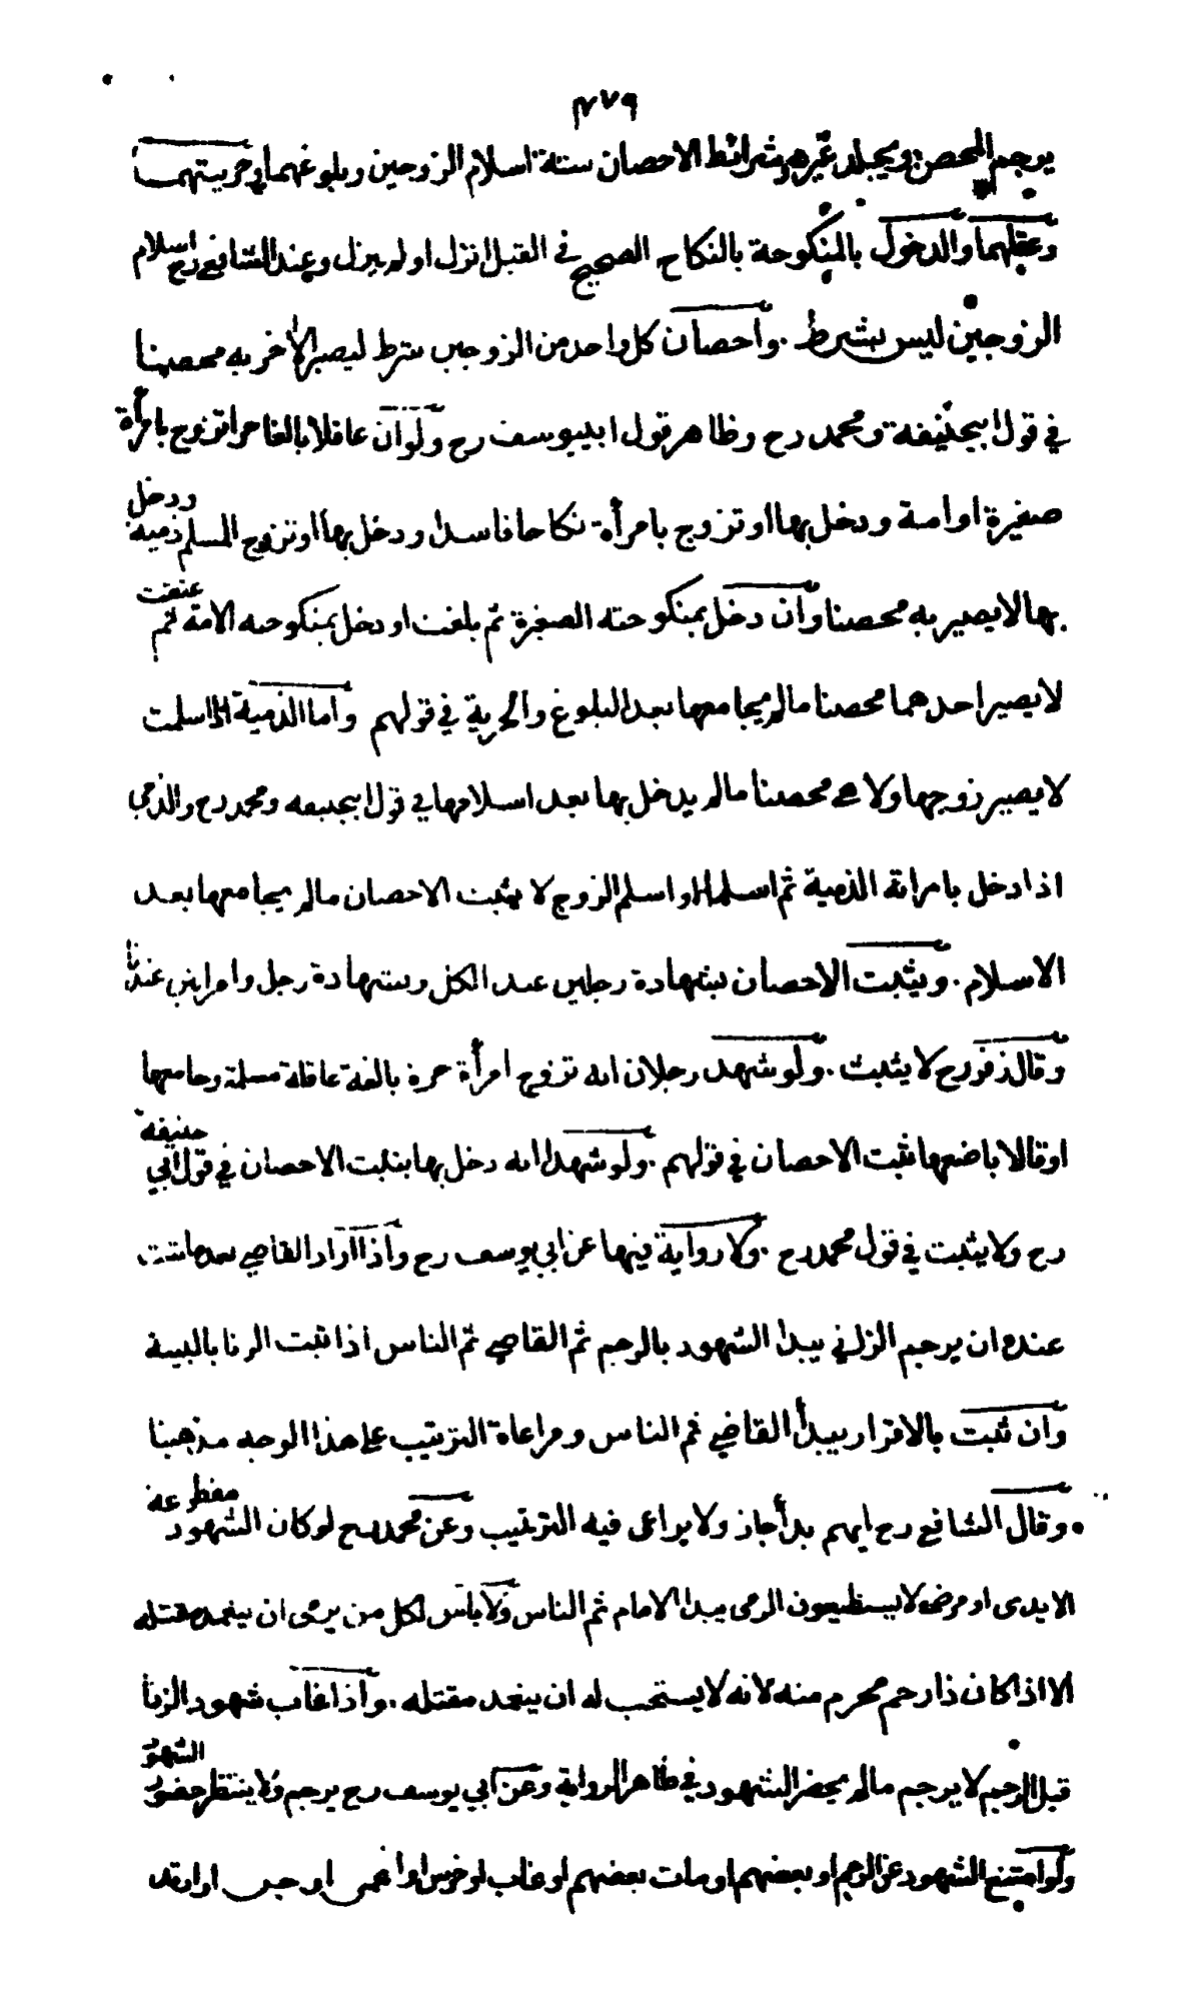 ٤٧٩
يرجم المحصن ويجلد غيره وشرائط الاحصان ستة اسلام الزوجين وبلوغهما وحريتهما
وعقلهما والدخول بالمنكوحة بالنكاح الصحيح في القبل انزل او لم ينزل وعند الشافعي رح اسلام
الزوجين ليس بشرط . واحصان كل واحد من الزوجين شرط ليصير الآخر به محصنا
في قول ابيحنيفة ومحمد رح وظاهر قول ابييوسف رح ولو ان عاقلا بالغا حرا تزوج بامرأة
صغيرة او امة ودخل بها او تزوج بامرأة نكاحا فاسدا ودخل بها او تزوج المسلم ذمية ودخل
بها لا يصير به محصنا وان دخل بمنكوحته الصغيرة ثم بلغت او دخل بمنكوحته الامة ثم عتقت
لا يصير احدهما محصنا مالم يجامعها بعد البلوغ والحرية في قولهم واما الذمية اذا اسلمت
لا يصير زوجها ولا هي محصنا مالم يدخل بها بعد اسلامها في قول ابيحنيفه ومحمد رح والذمي
اذا دخل بامراته الذمية ثم اسلما او اسلم الزوج لا يثبت الاحصان مالم يجامعها بعد
الاسلام . ويثبت الاحصان بشهادة رجلين عند الكل وبشهادة رجل وامراتين عندنا
وقال زفر رح لا يثبت . ولو شهد رجلان انه تزوج امرأة حرة بالغة عاقلة مسلمة وجامعها
او قالا باضعها ثبت الاحصان في قولهم . ولو شهدا انه دخل بها يثبت الاحصان في قول ابي حنيفة
رح ولا يثبت في قول محمد رح . ولا رواية فيها عن ابي يوسف رح واذا اراد القاضي بعد ما ثبت
عنده ان يرجم الزاني يبدأ الشهود بالرجم ثم القاضي ثم الناس اذا ثبت الزنا بالبينة
وان ثبت بالاقرار يبدأ القاضي ثم الناس ومراعاة الترتيب على هذا الوجه مذهبنا
وقال الشافعي رح ايهم بدأ جاز ولا يراعى فيه الترتيب وعن محمد رح لو كان الشهود مقطوعة
الايدى او مرضى لا يستطيعون الرمى يبدأ الامام ثم الناس ولا بأس لكل من يرمى ان يتعمد مقتله
الا اذا كان ذا رحم محرم منه لانه لا يستحب له ان يتعمد مقتله . واذا غاب شهود الزنا
قبل الرجم لا يرجم مالم يحضر الشهود في ظاهر الرواية وعن ابي يوسف رح يرجم ولا ينتظر حضور الشهود
ولو امتنع الشهود عن الرجم او بعضهم او مات بعضهم او غاب او خرس او اعمى او جن او ارتد